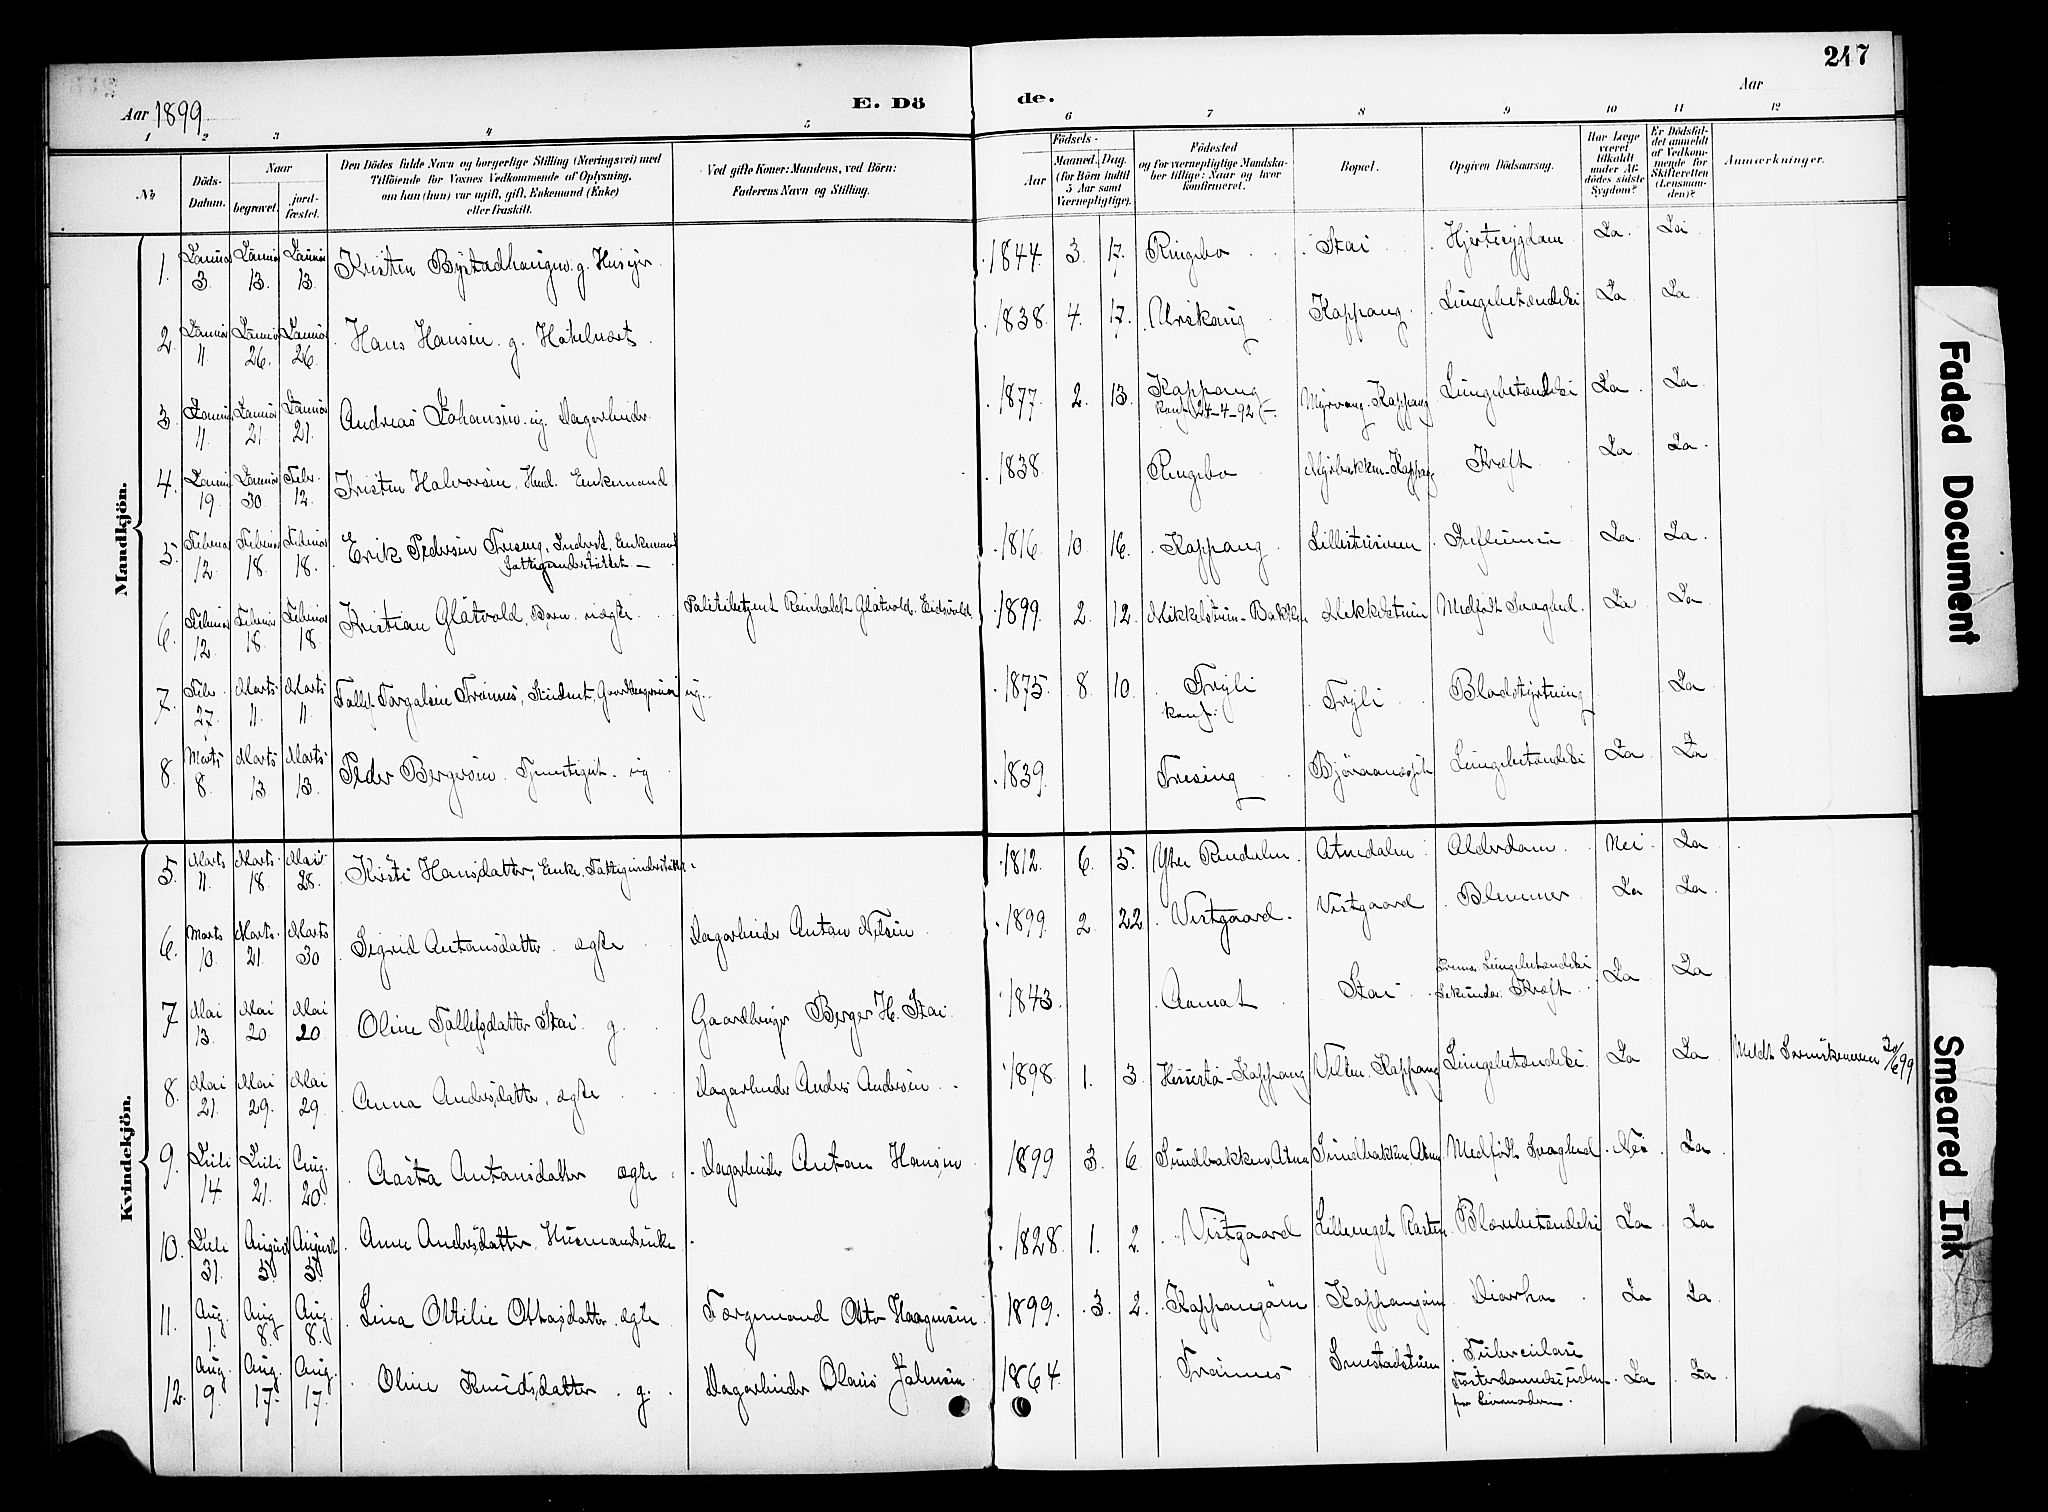 247
Aar 1899
E. Dö
de.
Aar
1 2 3 4 5 6 7 8 9 10 11 12
№
Döds-Datum.
Naar
begravet.
jord-fæstet.
Den Dödes fulde Navn og borgerlige Stilling (Næringsvei) med
Tilföiende for Voxnes Vedkommende af Oplysning,
om han (hun) var ugift, gift, Enkemand (Enke)
eller fraskilt.
Ved gifte Koner: Mandens, ved Börn:
Faderens Navn og Stilling.
Födsels-
Aar
Maaned. Dag.
(for Börn indtil
5 Aar samt
Værnepligtige).
Födested
og for værnepligtige Mandska-
ber tillige: Naar og hvor
konfirmeret.
Bopæl.
Opgiven Dödsaarsag.
Har Læge
været
tilkaldt
under Af-
dödes sidste
Sygdom?
Er Dödsfal-
det anmeldt
af Vedkom-
mende for
Skifteretten
(Lensman-
den)?
Anmærkninger.
Mandkjön.
1. Januar 3. Januar 13. Januar 13. Kristen Bystadhaugen. g. 1844. 3. 17. Ringebo Stai Hjertesygdom Ja. Jai
2. Januar 11. Januar 26. Januar 26. Hans Hansen. g. Hotelvært. 1838. 4. 17. Koppang. Lungebetændelse Ja Ja
3. Januar 11. Januar 21. Januar 21. Andreas Johansen. ug. Dagarbeider. 1877. 2. 13. Koppang konf. 24-4-92 Myrvang. Koppang Lungebetændelse Ja Ja
4. Januar 19. Januar 30. Febr. 12. Kristen Halvorsen, Enkemand 1838. Ringebo Myrbakken-Koppang Kræft Ja Ja
5. Februar 12. Februar 18. Februar 18. Erik Pedersen Tresing, Inderst, Enkemand
fattigunderstöttet 1816. 10. 16. Koppang. Lillestuen Influensa Ja Ja
6. Februar 12. Februar 18. Februar 18. Kristian Glåtvold, Barn. uægte Politibetjent Reinholdt Glåtvold. Eidsvold 1899 2. 12. Mikkelstuen-Bakken Mikkelstuen Medfödt Svaghed. Ja Ja
7. Febr. 27. Marts 11. Marts 11. Tollef Torgalsen Trønnes, Student, ug. 1875. 8. 10. Trysil konf. Trysil Blodstyrtning Ja
8. Marts 8. Marts 13 Marts 13. Peder Bergersen. ug 1839. Tresing Lungebetændelse Ja Ja
Kvindekjön.
5. Marts 11. Marts 18. Mai 28. Kirsti Hansdatter, Enke, Fattigunderstøttet 1812. 6. 5. Ytre Rendalen. Atnedalen Alderdom. Nei Ja
6. Marts 10. Marts 21. Marts 30 Sigrid Antonsdatter. ægte Dagarbeider Anton Nilsen 1899. 2. 22 Vestgaard. Vestgaard Ja Ja
7 Mai 13. Mai 20 Mai 20 Oline Tollefsdatter Stai. g. Gaardbruger Berger H. Stai. 1843. Aamot Stai Primær Lungebetændelse
Sekundær Kræft Ja Ja
8. Mai 21. Mai 29. Mai 29. Anna Andersdatter, ægte Dagarbeider Anders Andersen 1898 1. 3. Koppang Koppang Lungebetændelse. Ja Ja
9. Juli 14. Juli 21. Aug. 20. Aasta Antonsdatter ægte Dagarbeider Anton Hansen 1899 3. 6. Sundbakken, Atna Sundbakken, Atna Medfödt Svaghed. Nei Ja
10. Juli 31. August 5. August 5. Anne Andersdatter, Husmandsenke 1828. 1. 2. Vestgaard Lillenget Rasten Blærebetændelse Ja Ja
11. Aug. 1. Aug 8. Aug 8. Lina Ottilie Ottosdatter. ægte Færgemand Otto Haagensen 1899. 3. 2. Koppangöen Koppangöen Diarrhe Ja Ja
12. Aug. 9. Aug. 17. Aug. 17. Oline Knudsdatter. g. Dagarbeider Olaus Johnsen 1864 Trönnes Smestadstuen Ja Ja
Faded Document
Smeared Ink